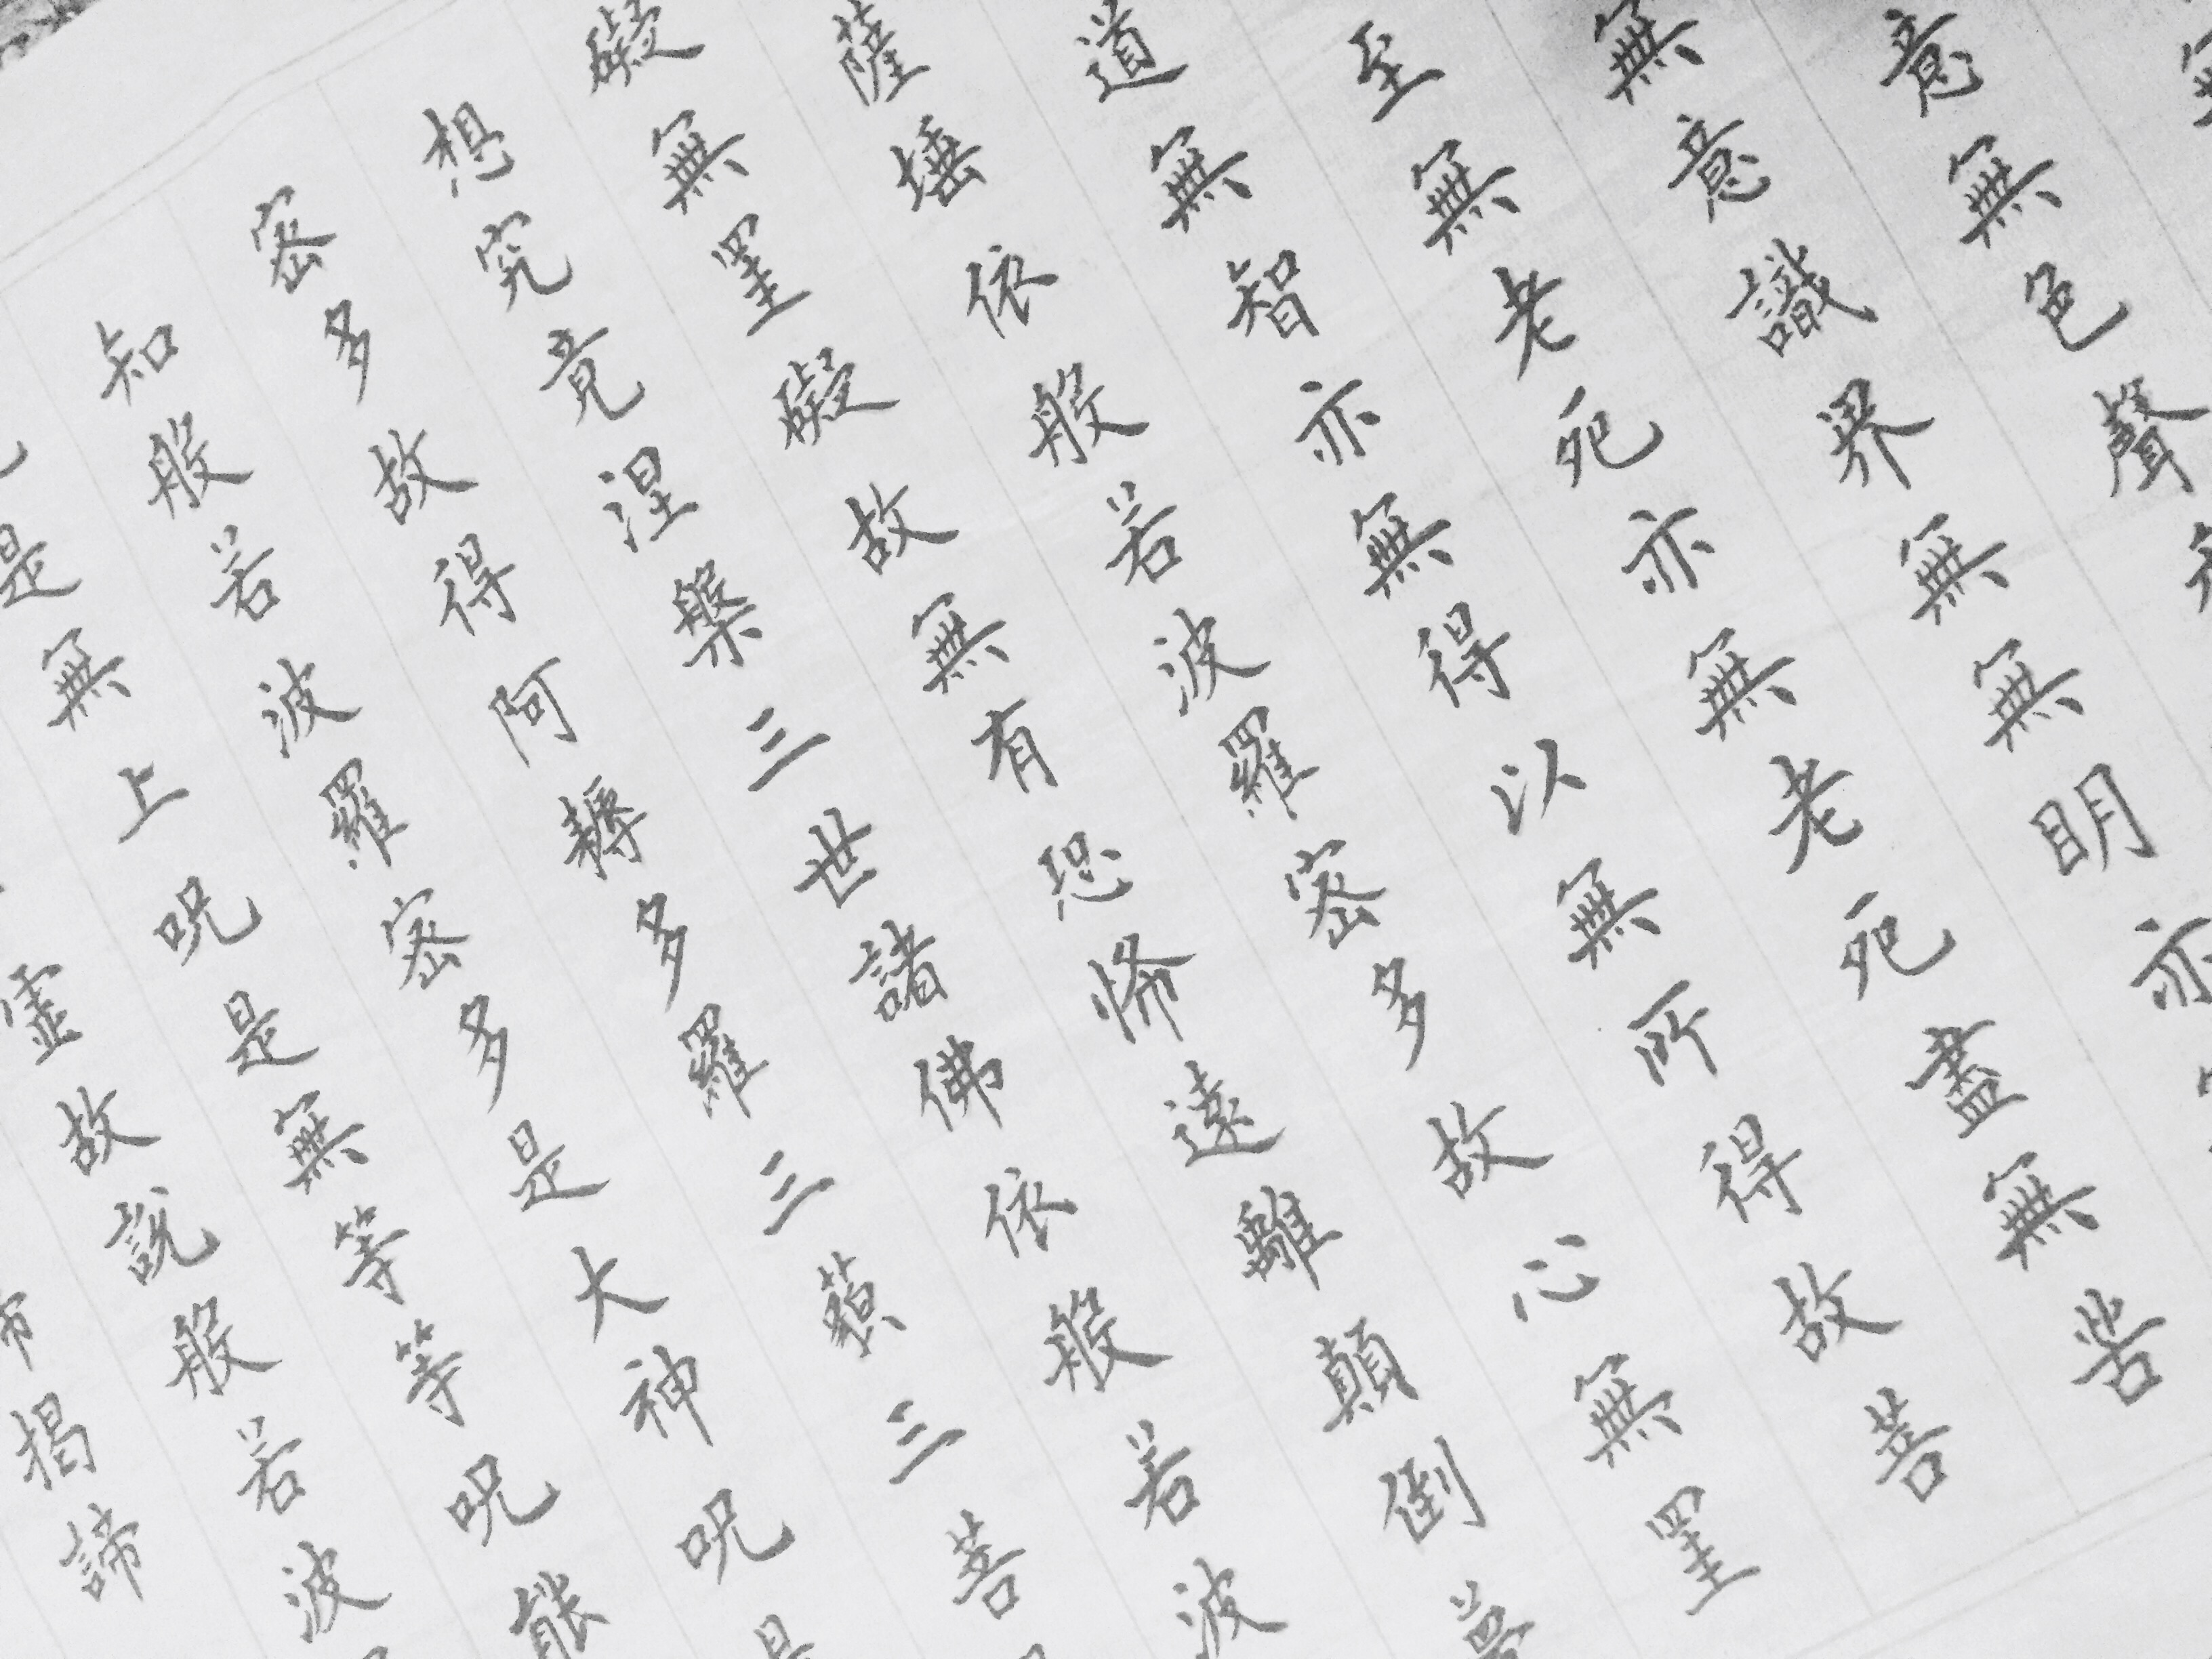 意無色聲
無意識界無無明亦
至無老死亦無老死盡無苦
道無智亦無得以無所得故菩
薩埵依般若波羅密多故心無罣
礙無罣礙故無有恐怖遠離顛倒夢
想究竟涅槃三世諸佛依般若波
密多故得阿耨多羅三藐三菩
知般若波羅密多是大神呪是
是無上呪是無等等呪能
虛故說般若波
揭諦